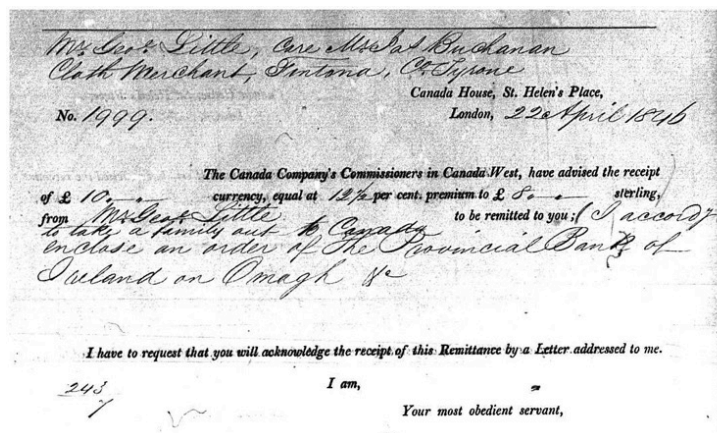 Mr. Geo. Little, Care Mr. Jas Buchanan
Cloth Merchant, Fintona, Co. Tyrone
Canada House, St. Helen's Place,
No. 1999. London, 22 April 1846
The Canada Company's Commissioners in Canada West, have advised the receipt
of £ 10. " " currency, equal at 12½ per cent. premium to £ 8 " " sterling,
from Mr. Geo. Little to be remitted to you; I accordy
to take a family out to Canada
enclose an order of the Provincial Bank of
Ireland on Omagh &c
I have to request that you will acknowledge the receipt of this Remittance by a Letter addressed to me.
243
7
I am,
Your most obedient servant,